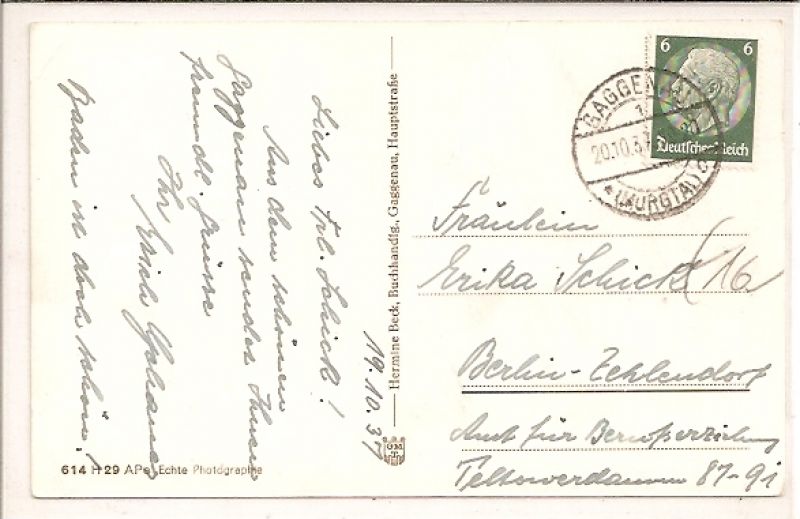 19.10.37
Liebes Frl. Schick!
Aus dem schönen
Gaggenau sendet Ihnen
freundl. Grüsse
Ihr Erich
Baden ist doch schön!
614 H 29 APa Echte Photographie
Hermine Beck, Buchhandlg., Gaggenau, Hauptstraße
GM
T
6 6
Deutsches Reich
GAGGENAU
20.10.37
(MURGTAL)
Fräulein
Erika Schick (16
Berlin-Zehlendorf
Amt für Berufserziehung
Teltowerdamm 87-91